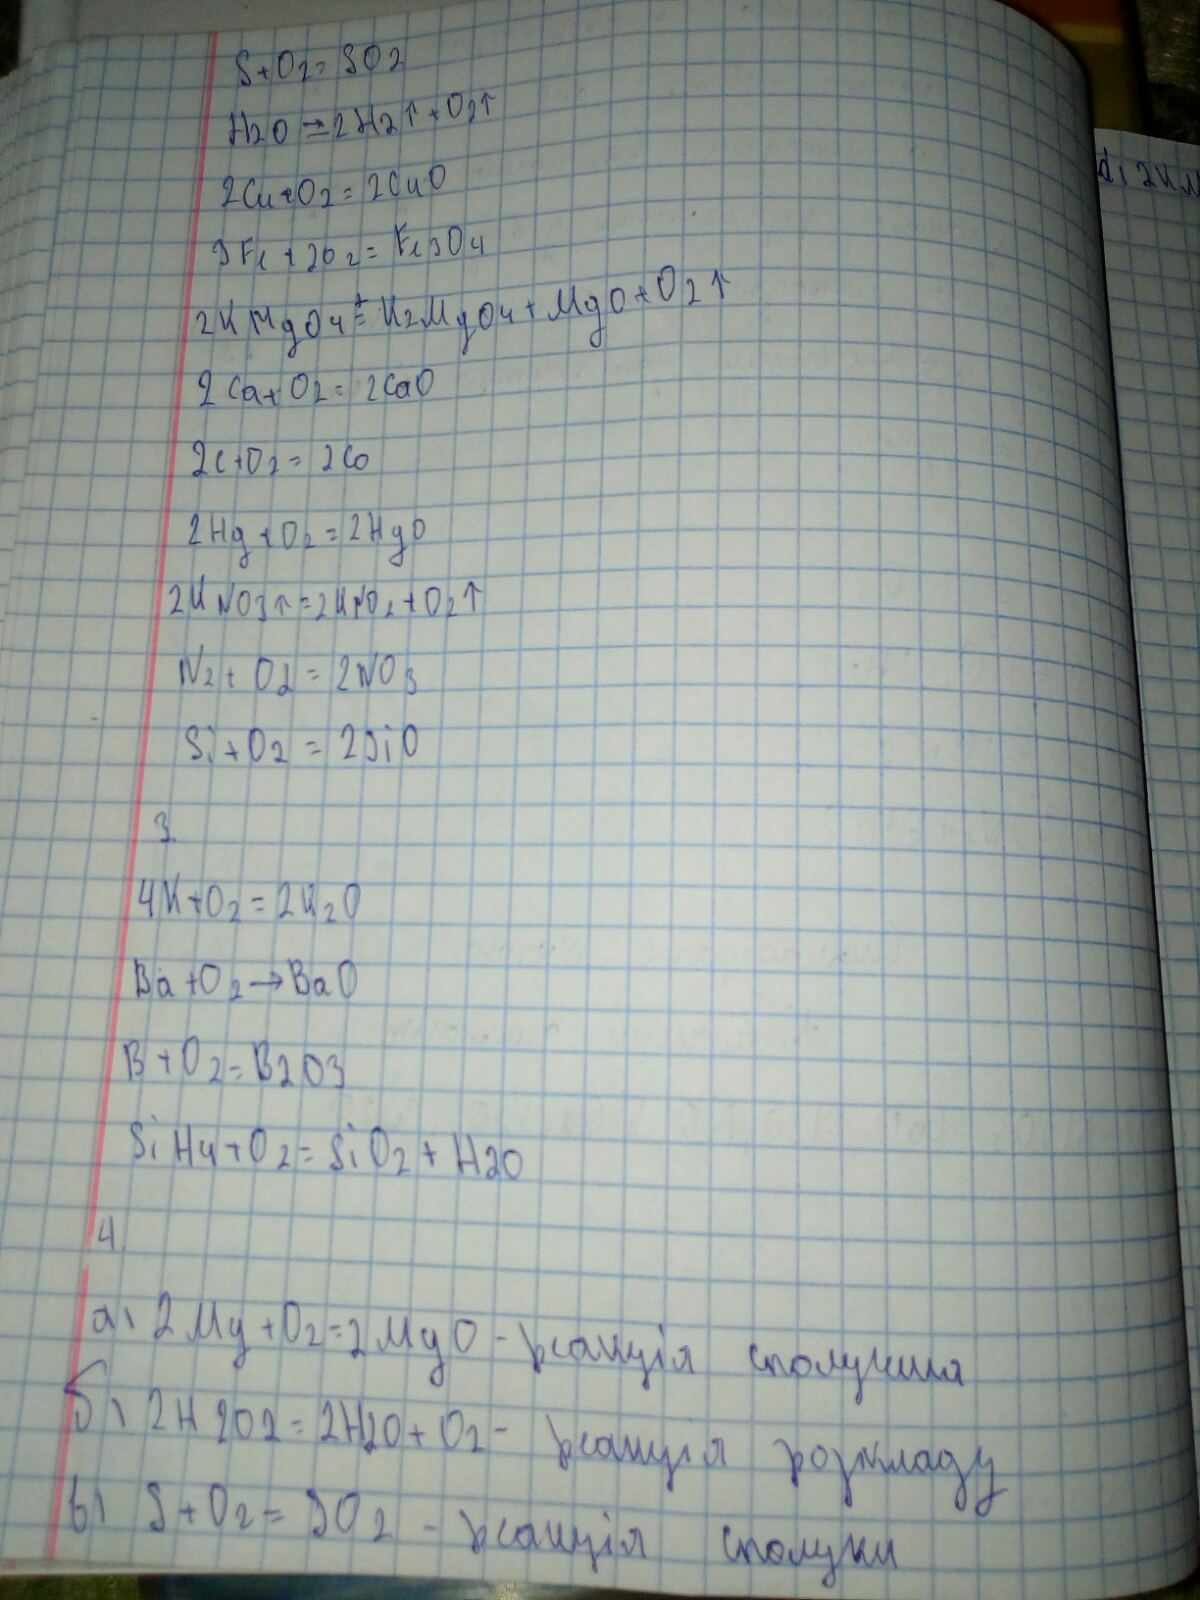 S+O2=SO2
H2O ⇒ 2H2↑+O2↑
2Cu+O2=2CuO
3Fe+2O2=Fe3O4
2KMgO4=K2MgO4+MgO+O2↑
2Ca+O2=2CaO
2C+O2=2CO
2Hg+O2=2HgO
2KNO3↑=2KNO2+O2↑
N2+O2=2NO3
Si+O2=2SiO
3
4K+O2=2K2O
Ba+O2→BaO
B+O2=B2O3
SiH4+O2=SiO2+H2O
4
а) 2Mg+O2=2MgO - реакція сполучення
б) 2H2O2=2H2O+O2- реакція розкладу
в) S+O2=SO2 - реакція сполуки